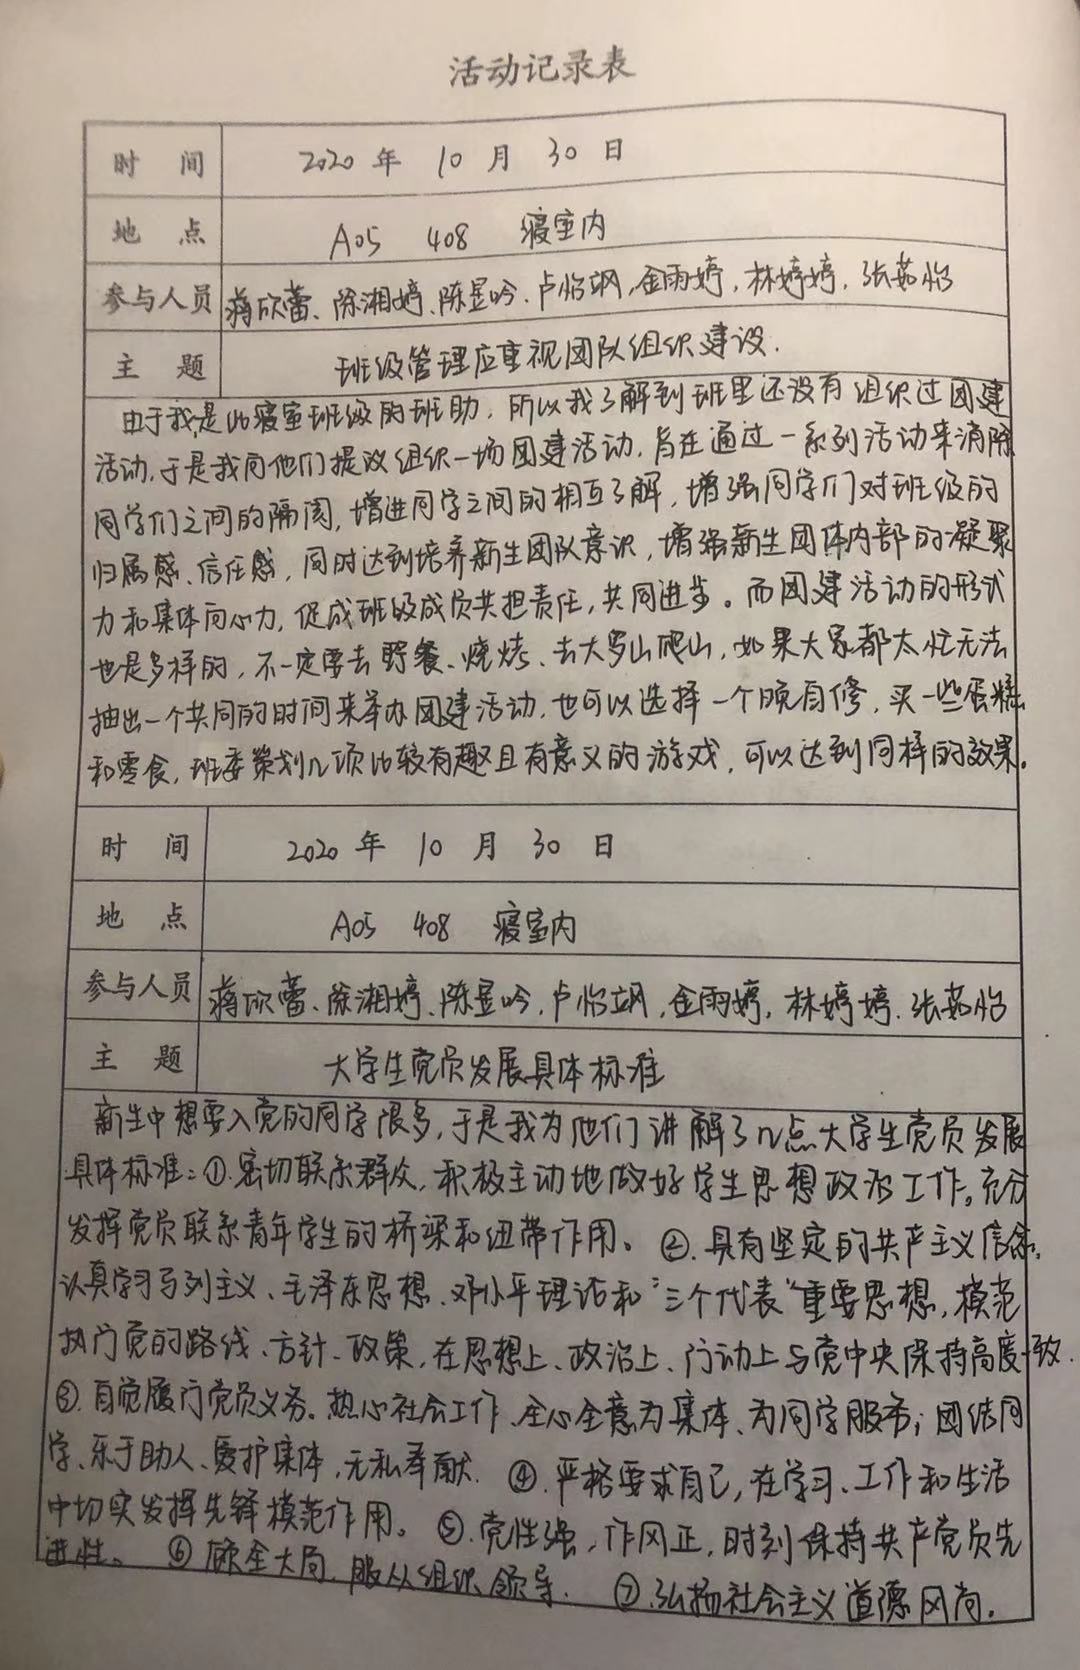 活动记录表
时 间 2020 年 10 月 30 日
地 点 A05 408 寝室内
参与人员 蒋欣蕾、陈湘婷、陈昱吟、卢怡飒,金雨婷,林婷婷、张茹怡
主 题 班级管理应重视团队组织建设.
由于我是此寝室班级的班助,所以我了解到班里还没有组织过团建
活动,于是我向他们提议组织一场团建活动,旨在通过一系列活动来消除
同学们之间的隔阂,增进同学之间的相互了解,增强同学们对班级的
归属感、信任感,同时达到培养新生团队意识,增强新生团体内部的凝聚
力和集体向心力,促成班级成员共担责任,共同进步。而团建活动的形式
也是多样的,不一定要去野餐、烧烤、去大罗山爬山,如果大家都太忙无法
抽出一个共同的时间来举办团建活动,也可以选择一个晚自修,买一些蛋糕
和零食,班委策划几项比较有趣且有意义的游戏,可以达到同样的效果。
时 间 2020 年 10 月 30 日
地 点 A05 408 寝室内
参与人员 蒋欣蕾、陈湘婷、陈昱吟,卢怡飒,金雨婷,林婷婷、张茹怡
主 题 大学生党员发展具体标准
新生中想要入党的同学很多,于是我为他们讲解了几点大学生党员发展
具体标准:①.密切联系群众,积极主动地做好学生思想政治工作。充分
发挥党员联系青年学生的桥梁和纽带作用。②.具有坚定的共产主义信念,
认真学习马列主义、毛泽东思想、邓小平理论和“三个代表”重要思想,模范
执行党的路线、方针、政策,在思想上、政治上、行动上与党中央保持高度一致.
③.自觉履行党员义务。热心社会工作、全心全意为集体、为同学服务;团结同
学、乐于助人、爱护集体,无私奉献. ④.严格要求自己,在学习、工作和生活
中切实发挥先锋模范作用。⑤.党性强,作风正,时刻保持共产党员先
进性。⑥顾全大局,服从组织领导. ⑦.弘扬社会主义道德风尚.